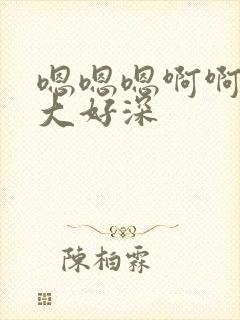 嗯嗯嗯啊啊
大好深
陳柏霖